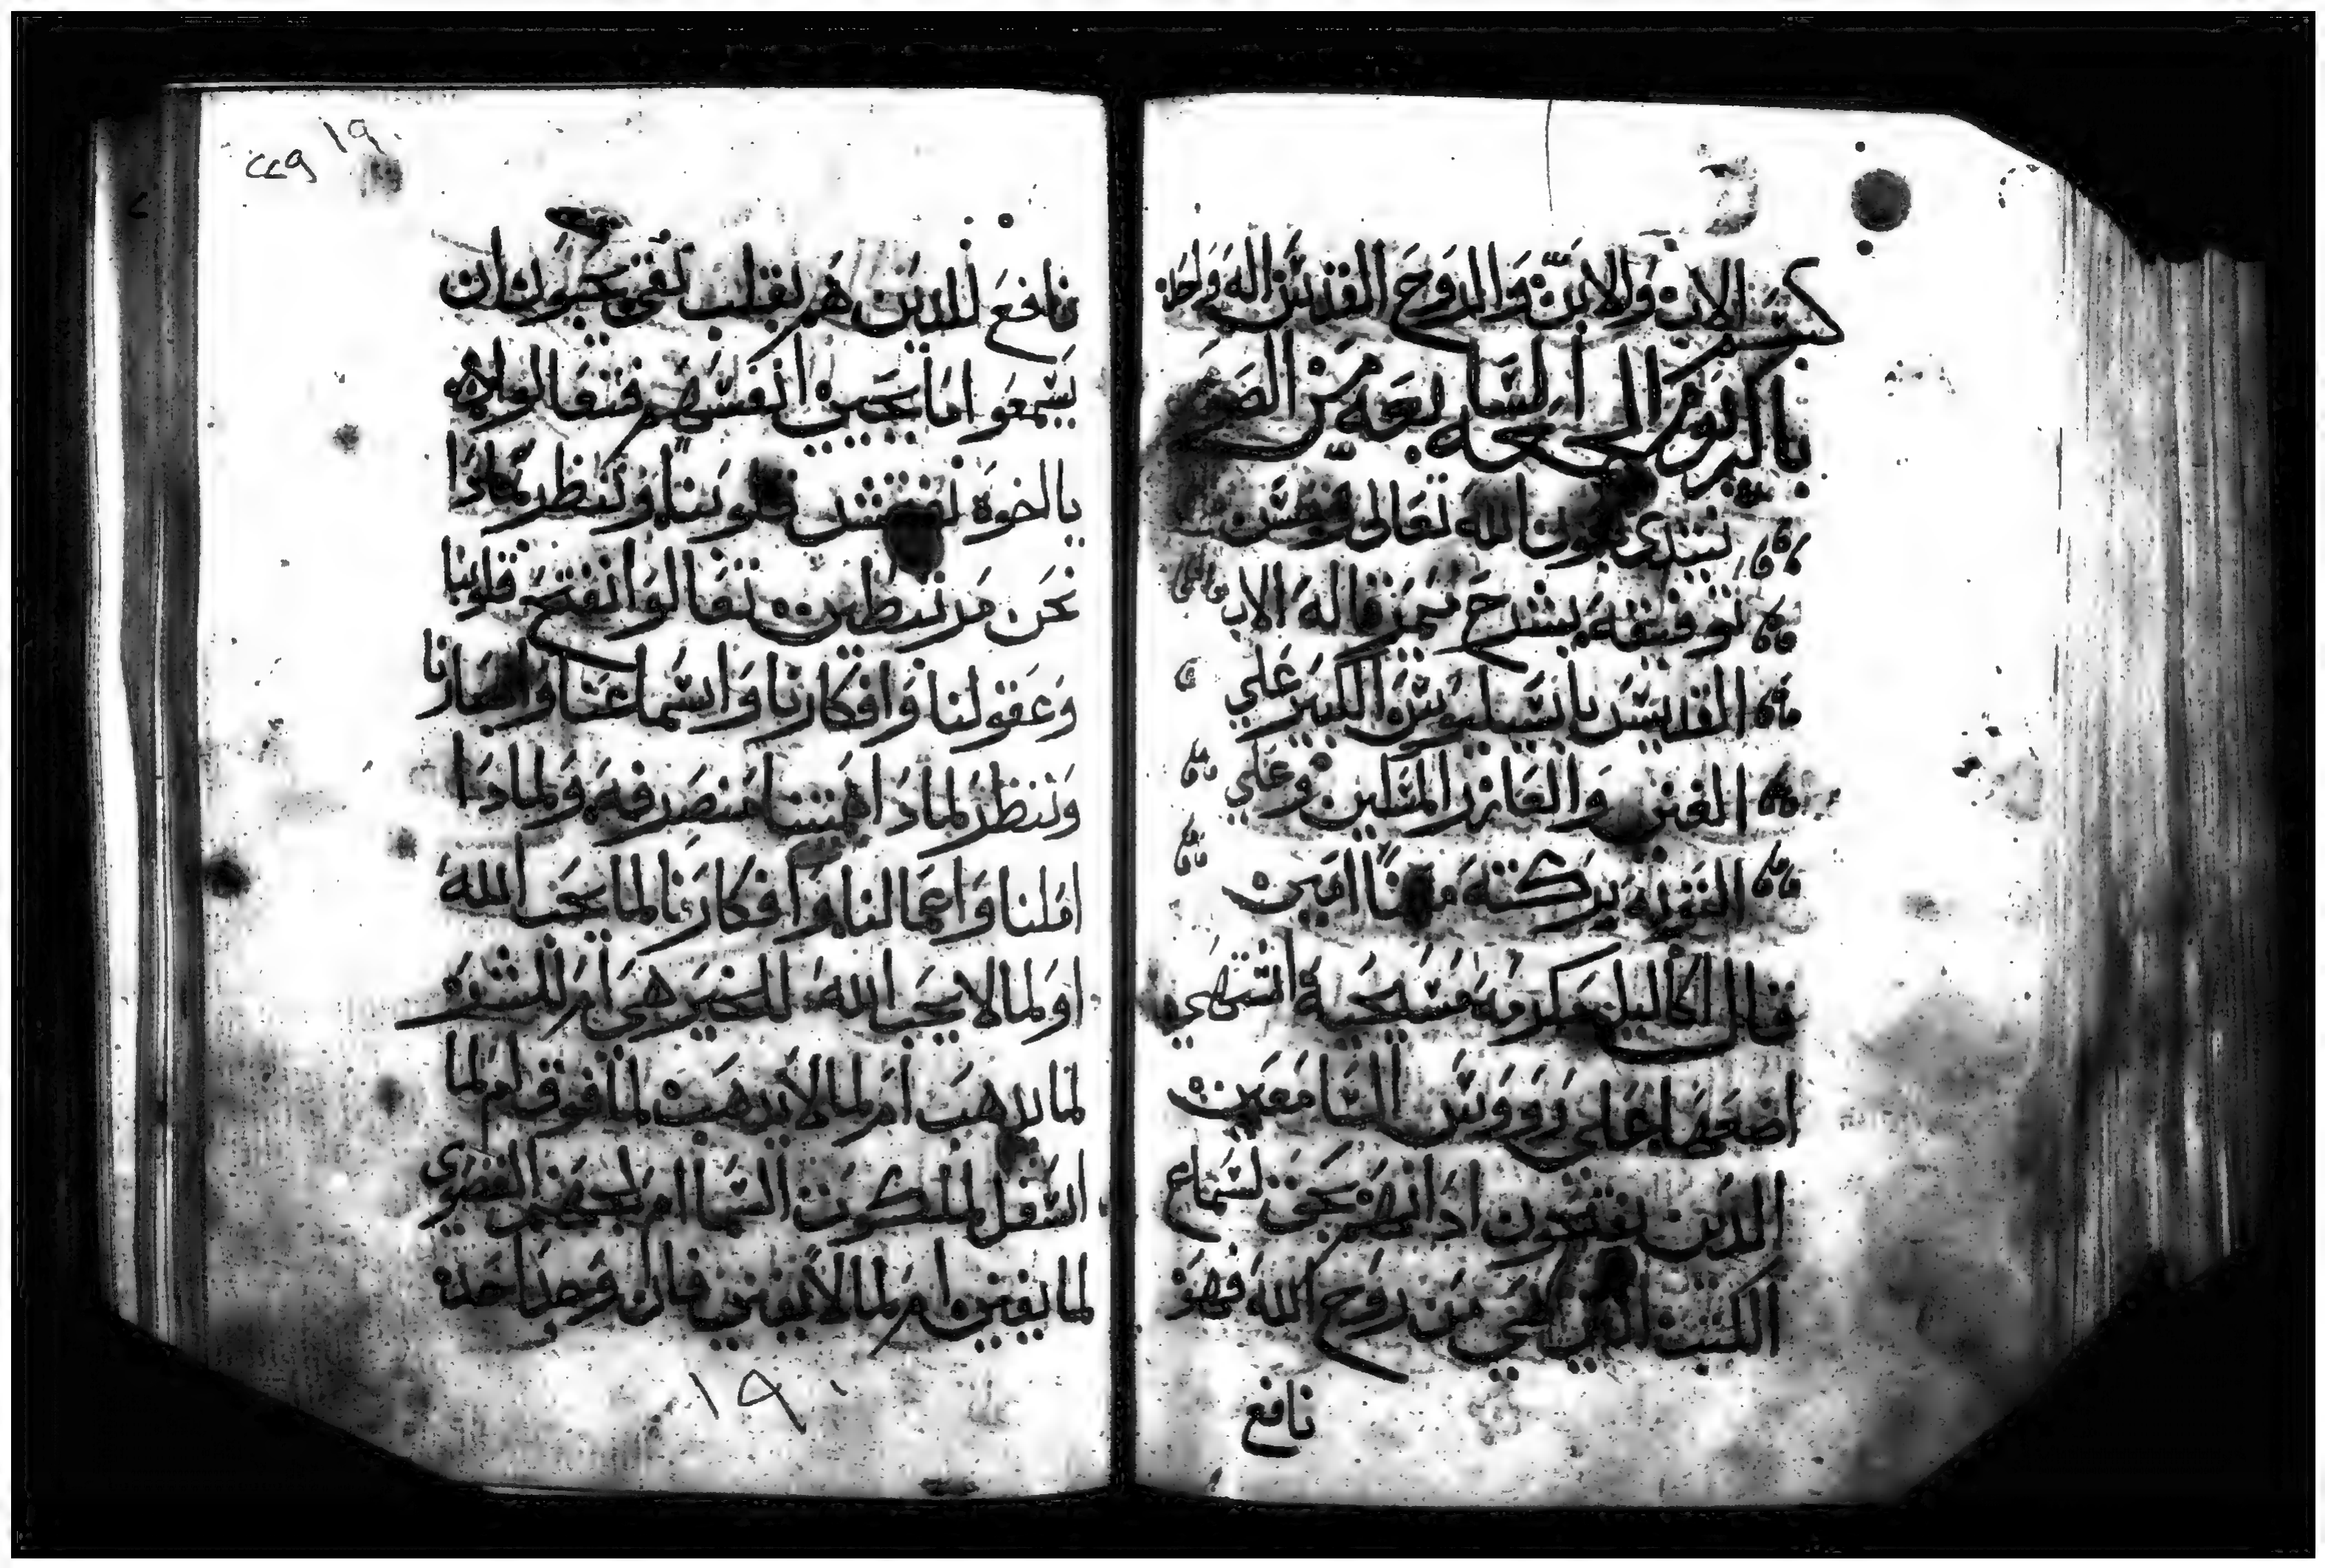 بسم الاب والابن والروح القدس اله واحد
باكر يوم الجمعه السابعه من الصوم
نبتدي بعون الله تعالى وحسن
توفيقه بشرح ميمر قاله الاب
القديس باسيليوس الكبير علي
الغني والعازر المسكين وعلي
بركته معنا امين
قال اكاليل مكرمه مسيحيه اشتهي
اضعها علي رووس السامعين
الذين يفتشون اذانهم بحق لسماع
الكتب الذين هي من روح الله فهو
نافع
١٩٠
٢٢٩
نافع للذين هم بقلب نقي يحبون ان
يسمعوا اما يحيي انفسهم فتعالوا
يا اخوه نفتش قلوبنا وننظر لماذا
نحن مرتبطين تعالوا نفتح قلوبنا
وعقولنا وافكارنا واسماعنا وابصارنا
وننظر لماذا همتنا منصرفه ولماذا
املنا واعمالنا وافكارنا لما يحب الله
او لما لا يحب الله للخير هي ام للشر
لما يذهب ام لما لا يذهب لما فوق ام لما
اسفل لملكوت السما ام لجحيم القصوي
لما يفني ام لما لا يفني فان وجد احد
١٩٠